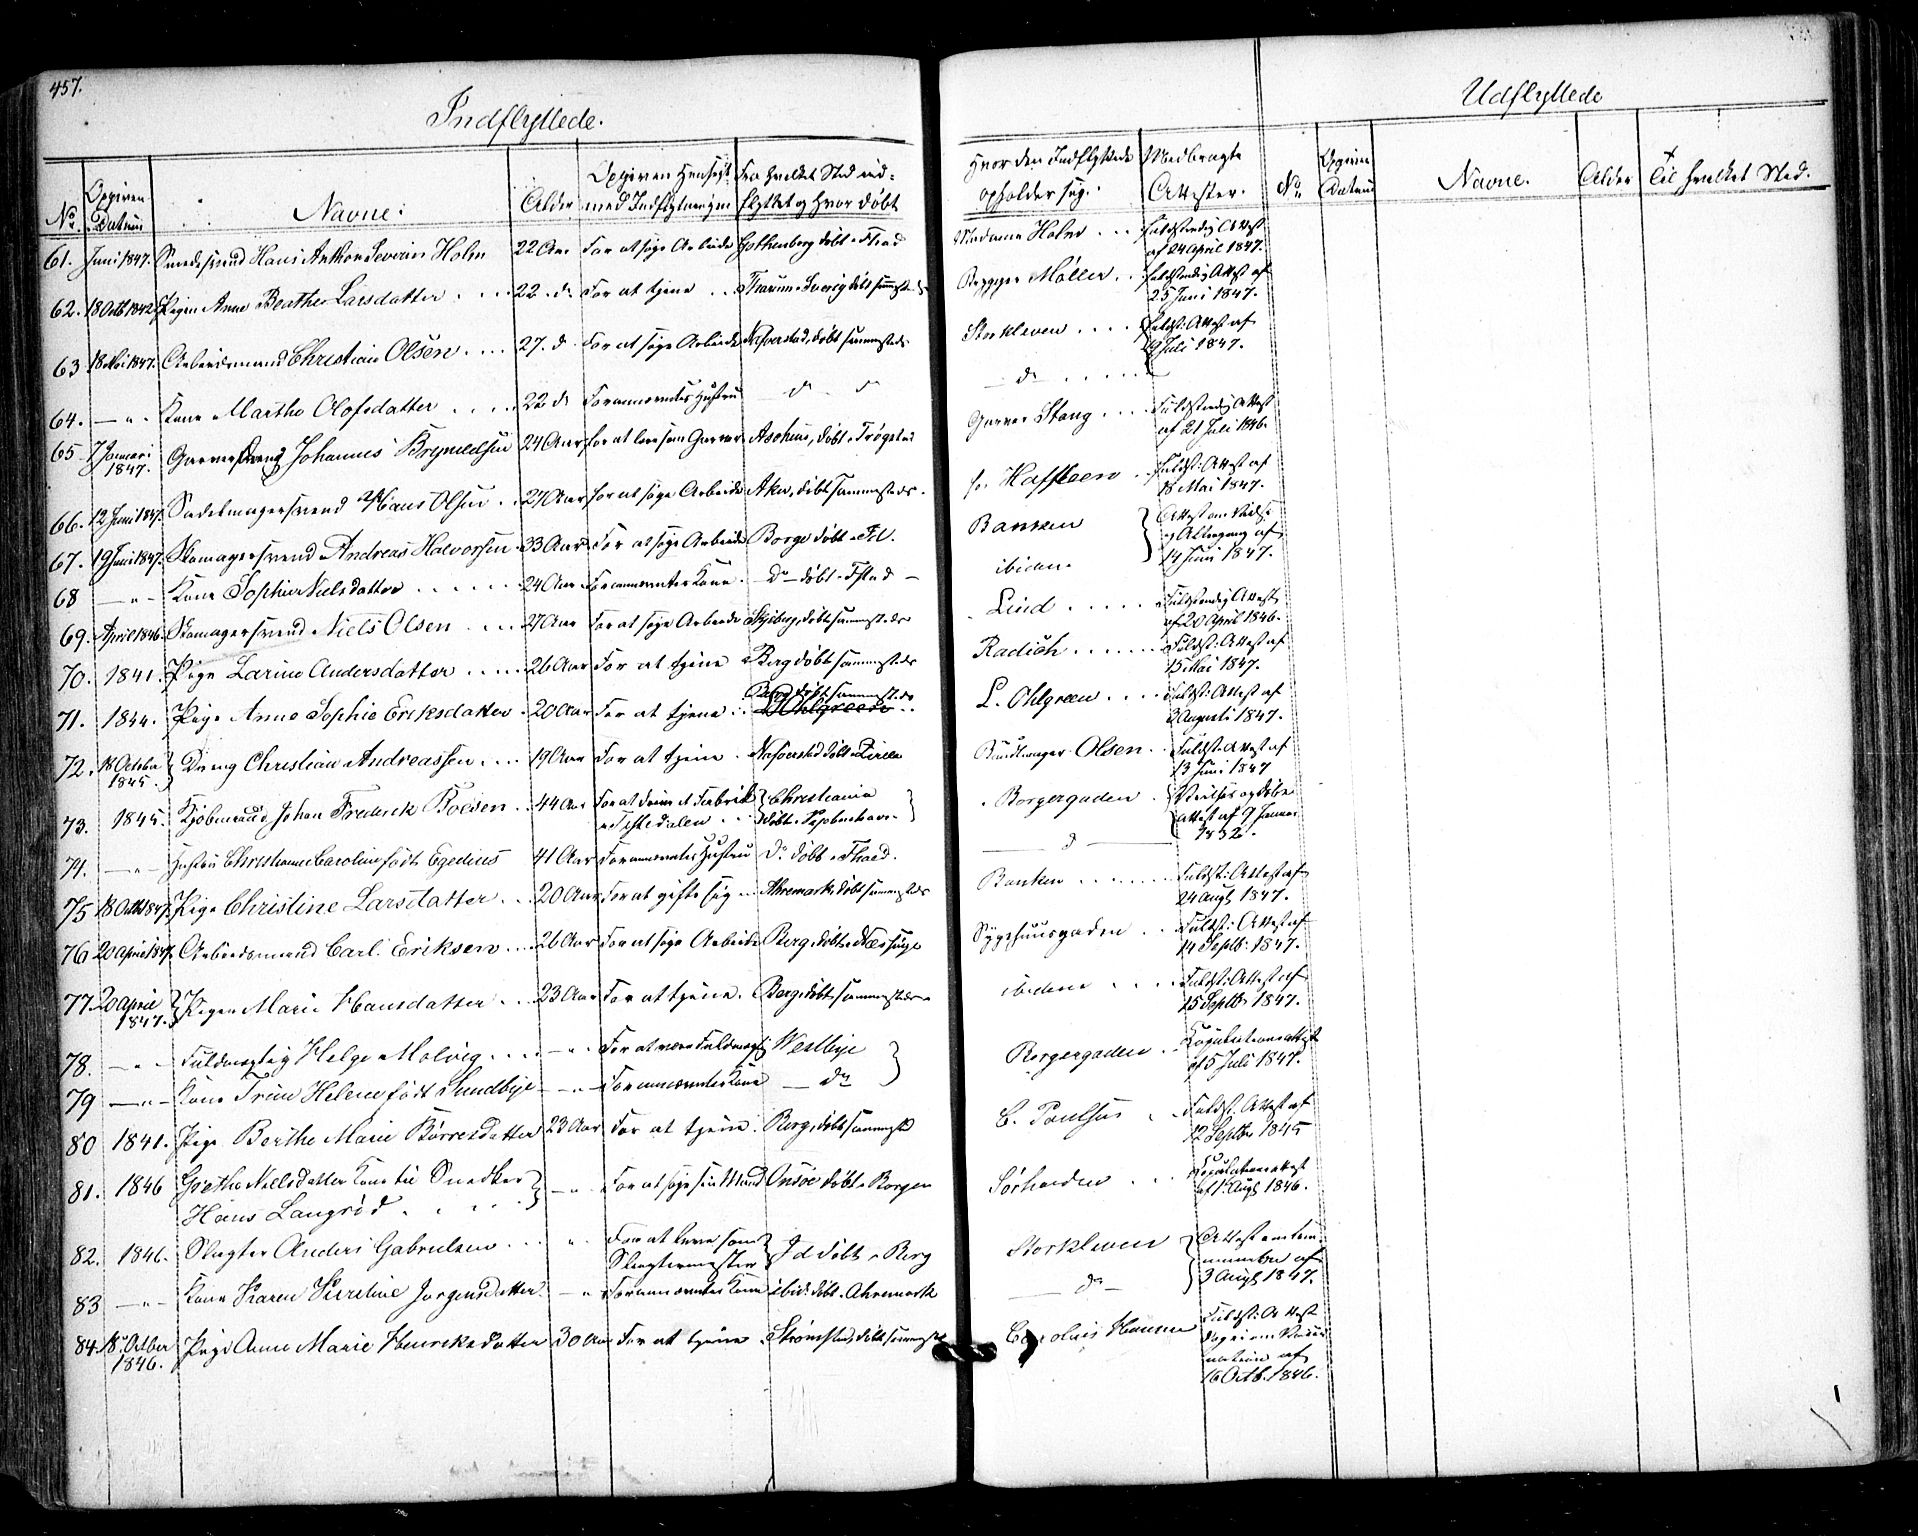 457.
Indflyttede.
Udflyttede
No. Opgiven Datum Navne: Alder Opgiven Hensigt med Indflytningen Fra hvilket Sted ind- flyttet og hvor døbt
Hvor den Indflyttede opholder sig. Medbragte Attester. No. Opgiven Datum Navne. Alder Til hvilket Sted.
61. Juni 1847. Smedesvend Hans Anthon Severin Holm 22 Aar For at søge Arbeide Gothenborg døbt Fstad Madame Holm . . . Fuldstændig Attest af 24 April 1847.
62. 18 Octb 1842 Pigen Anne Berthe Larsdatter . . . . 22 do For at tjene . . Sverig døbt sammesteds Brygger Møller . . Fuldstændig Attest af 25 Juni 1847.
63 18 Mai 1847. Arbeidsmand Christian Olsen . . . . 27. do For at søge Arbeide døbt sammesteds Storkleven . . . . Fuldst: Attest af 19 Juli 1847.
64. — " - Kone Marthe Olofsdatter . . . . . 22 do Forannævntes Hustru do do — do . . . . .
65 7 Januari 1847. Garversvend Johannes Brynildsen 24 Aar for at lære som Garver Aschim, døbt Trøgstad Garver Stang . . . . Fuldstændig Attest af 21 Juli 1846.
66. 12 Juni 1847. Sadelmagersvend Hans Olsen . . 27 Aar for at søge Arbeide Aker, døbt sammesteds. Fuldst: Attest af 18 Mai 1847.
67. 19 Juni 1847. Skomagersvend Andreas Halvorsen . 33 Aar For at søge Arbeide Borge døbt Id. Banken Attest om Vielse og Altergang af 14 Juni 1847.
68 — " - Kone Sophie Nielsdatter . . . . . . 24 Aar Forannævntes Kone . Do — døbt Fstad — ibidem.
69. April 1846. Skomagersvend Niels Olsen . . . . 27 Aar For at søge Arbeide døbt sammesteds Lind . . . . . Fuldstændig Attest af 20 April 1846.
70. 1841. Pige Larine Andersdatter . . . . . 26 Aar For at tjene Berg døbt sammesteds Radich . . . . . . . Fuldst: Attest af 15 Mai 1847.
71. 1844. Pige Anne Sophie Eriksdatter . 20 Aar For at tjene . . Berg døbt sammesteds L. Ohlgreen . . . . Fuldst: Attest af 3 Augusti 1847.
72. 18 October 1845. Dreng Christian Andreassen . . . 19 Aar For at tjene . døbt Olsen . Fuldst: Attest af 13 Juni 1847
73. 1845. Kjøbmand Johan Fredrick Boesen . . 44 Aar For at drive et Fabrik i Tistedalen . . . Christiania døbt . Borgergaden . Vielses og Døbe attest af 9 Januar 1832.
74. — " - Hustru Christiane Caroline født Egedius 41 Aar Forannævntes Hustru Do døbt Fhald. — do —
75 18 Octb 1847. Pige Christine Larsdatter . . . 20 Aar For at gifte sig . . Ahremark, døbt sammesteds Banken . . . . . . . . Fuldst: Attest af 24 Augt 1847.
76 20 April 1847. Arbeidsmand Carl Eriksen . . . . 26 Aar For at søge Arbeide Berg, døbt Sygehuusgaden . . Fuldst: Attest af 14 Septb: 1847.
77. 20 April 1847. Pigen Marie Hansdatter . . . . 23 Aar For at tjene . Berg, døbt sammesteds ibidem . . . . Fuldst: Attest af 15 Septbr 1847.
78. — " - Fuldmægtig Helge Molvig . . . . — " - For at være Fuldmægtig Westbye Borgergaden . . Copulationsattest af 5 Juli 1847.
79 — " - Kone Trine Helene født Sundbye — " - Forannævntes Kone — do
80 1841. Pige Berthe Marie Børresdatter 23 Aar For at tjene . Berg, døbt sammesteds C. Poulsen . . Fuldst: Attest af 12 Septbr 1845
81. 1846 Grethe Nielsdatter Kone til Snedker Hans Langrød . . . . . — " - For at søge sin Mand Onsøe døbt Borgen Sørhalden . . . Copulationsattest af 1 Augt 1846.
82. 1846. Slagter Anders Gabrielsen . . . " . For at være som Slagtermester Id døbt Berg Storkleven Attest om af 3 Augt 1847.
83 — " - Kone Karen Kirstine Jørgensdatter — " Forannævntes Kone ibid. døbt Ahremark — do —
84. 18. October 1846. Pige Anne Marie Henriksdatter 30 Aar For at tjene . Strømstad, døbt sammesteds Hanna Fuldst: Attest af 16 Octb. 1846.